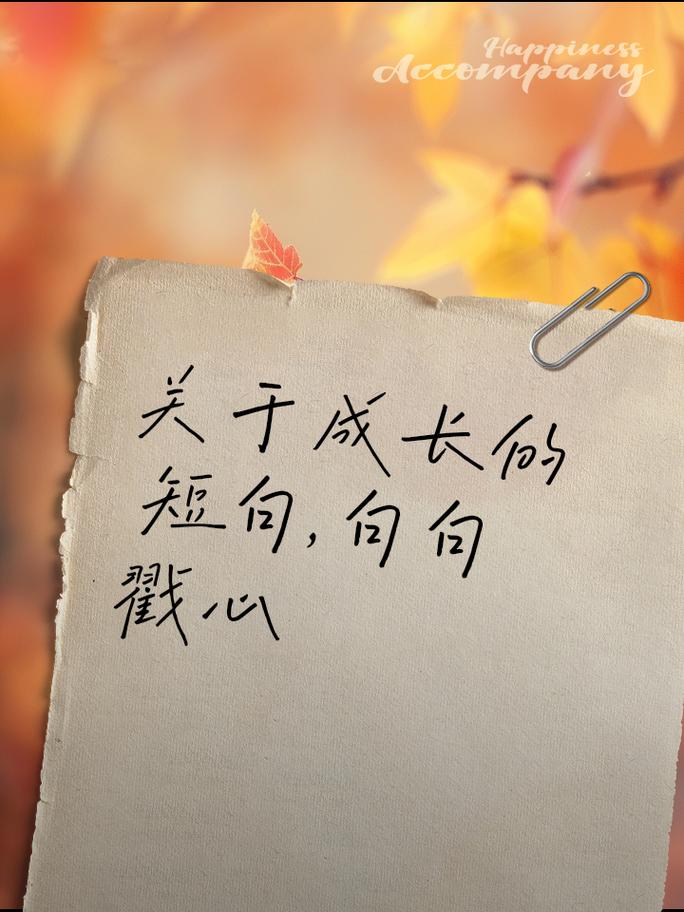 Happiness
Accompany
关于成长的
短句,句句
戳心